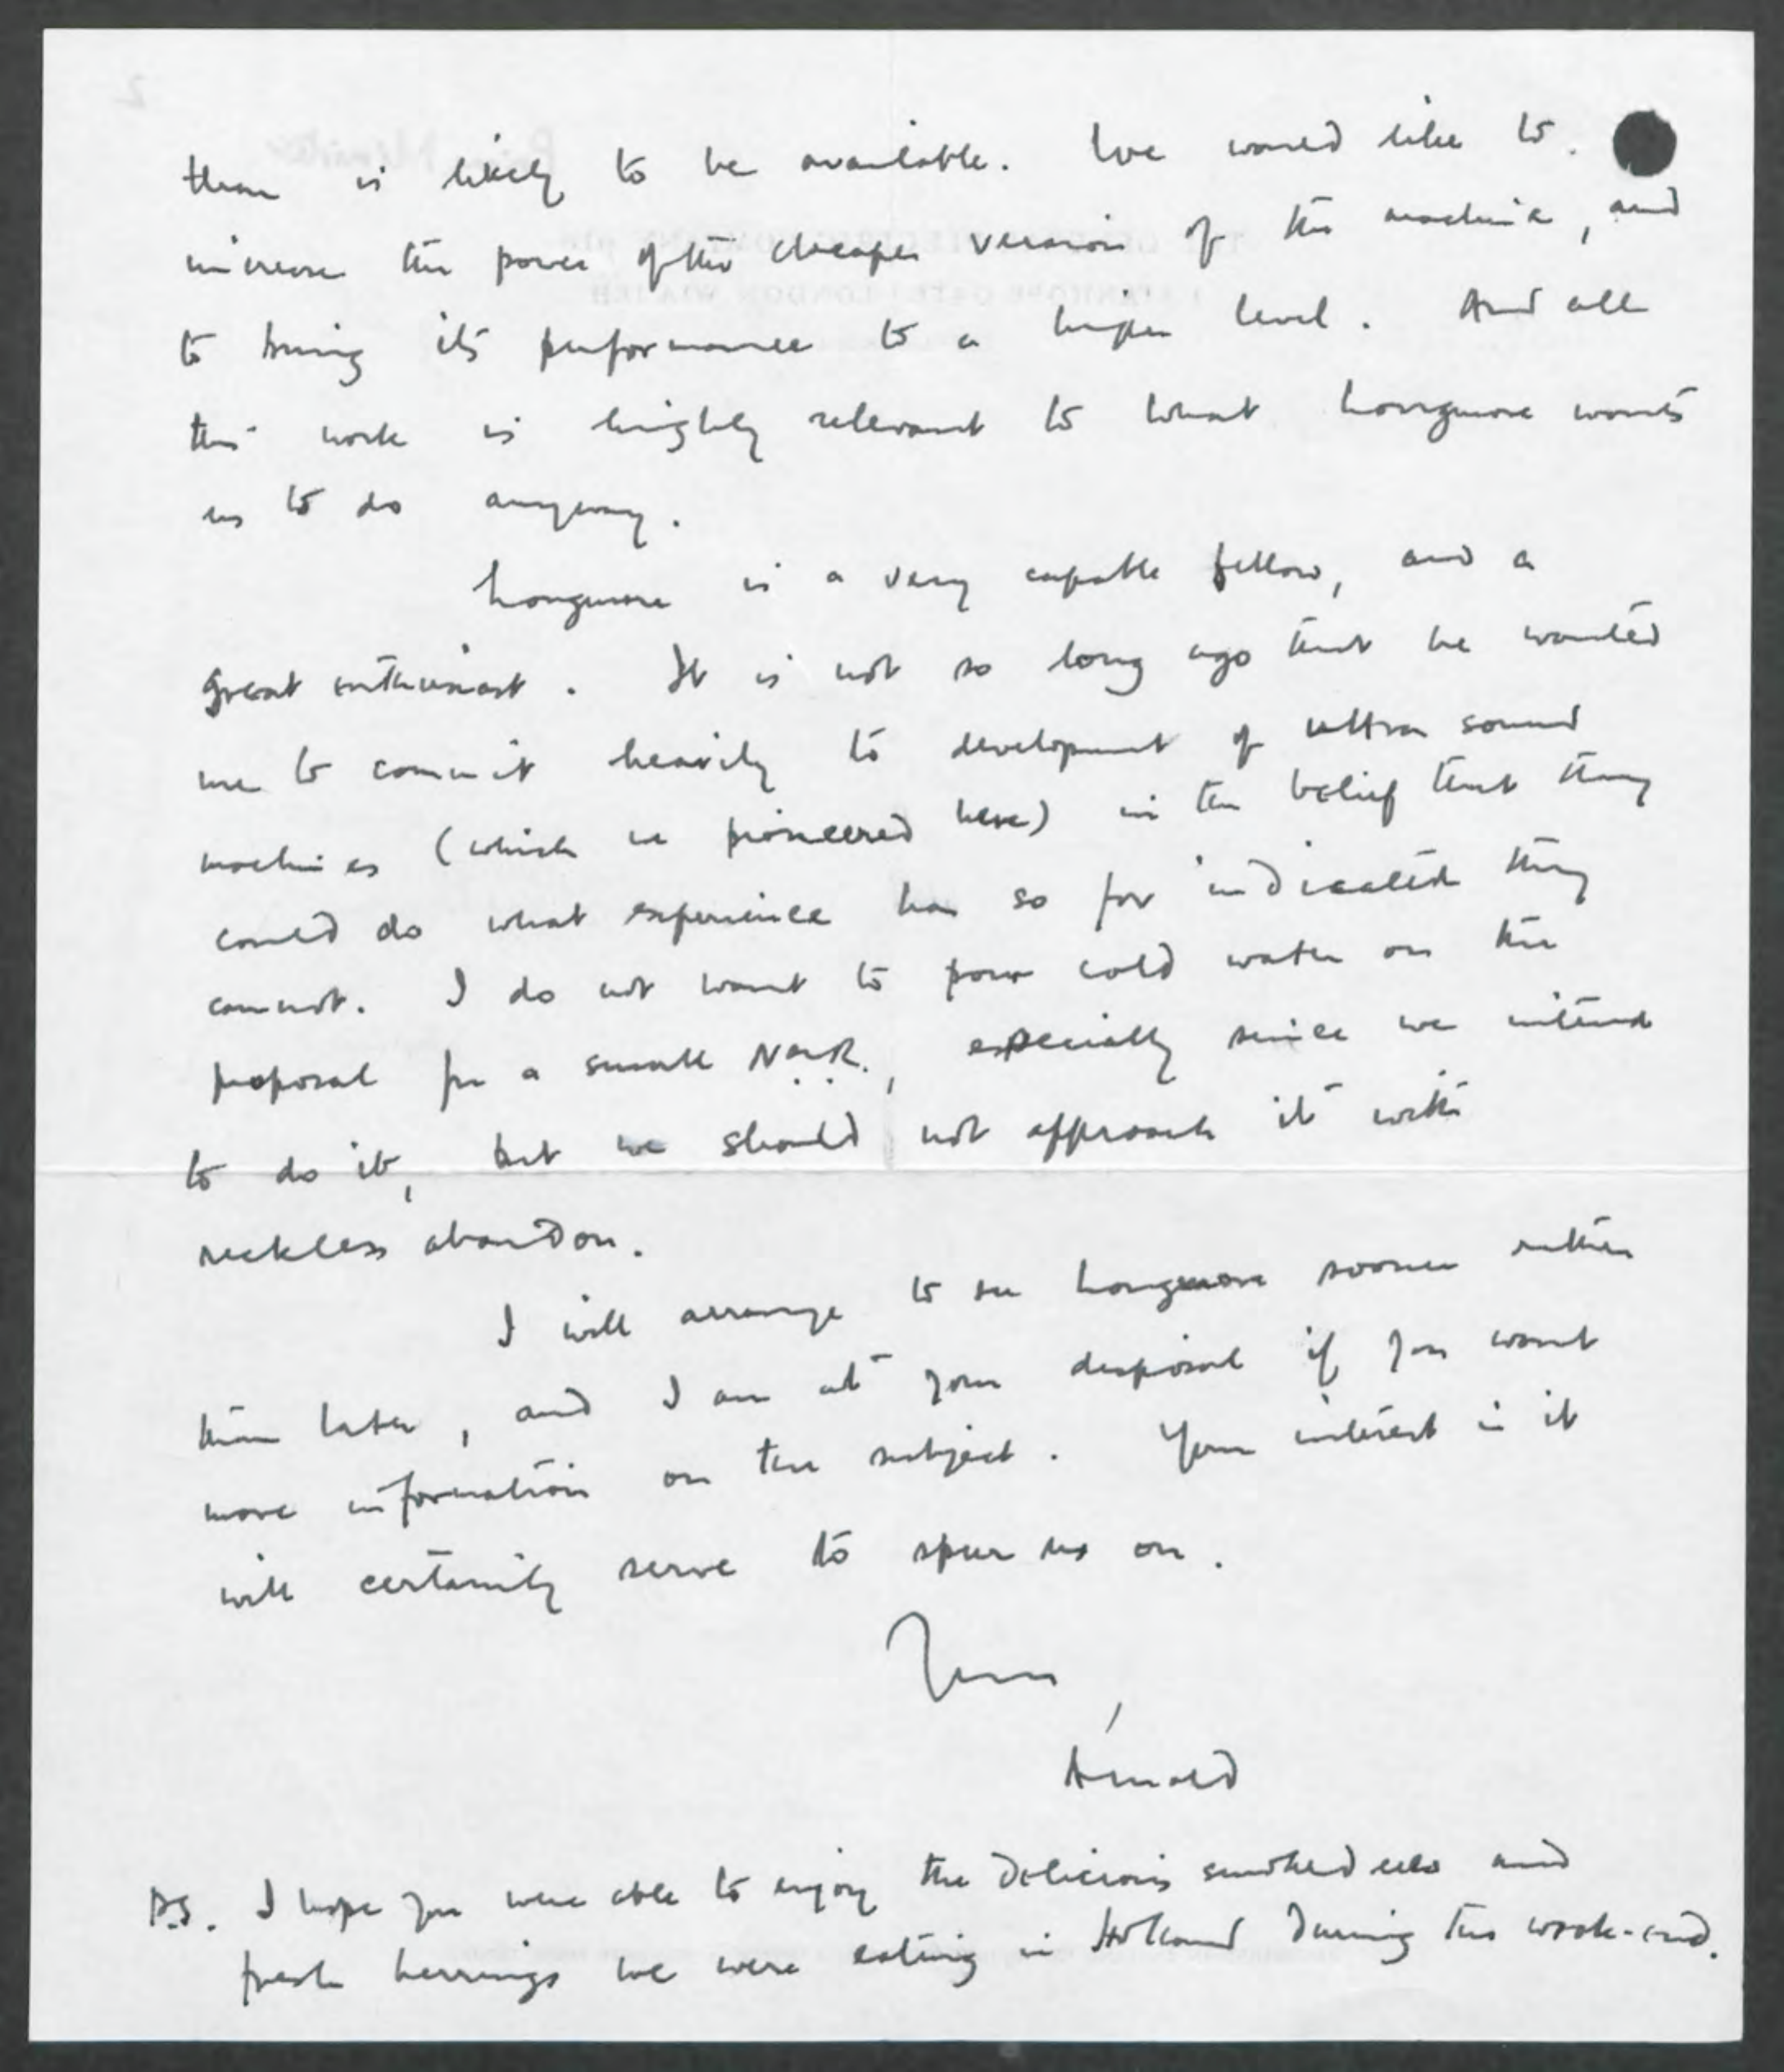 than is likely to be available. We would like to
increase the power of the cheaper version of the machine, and
to bring its performance to a higher level. And all
this work is highly relevant to what Longmore wants
us to do anyway.
Longmore is a very capable fellow, and a
great enthusiast. It is not so long ago that he wanted
me to commit heavily to development of ultra sound
machines (which we pioneered here) in the belief that they
could do what experience has so far indicated they
cannot. I do not want to pour cold water on the
proposal for a small N.M.R., especially since we intend
to do it, but we should not approach it with
reckless abandon.
I will arrange to see Longmore sooner rather
than later, and I am at your disposal if you want
more information on the subject. Your interest in it
will certainly serve to spur us on.
Yours,
Arnold
P.S. I hope you were able to enjoy the delicious smoked eels and
fresh herrings we were eating in Holland during the week-end.